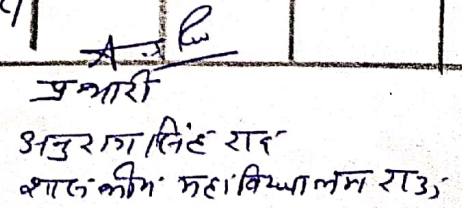 प्रभारी
अनुराग सिंह राव
शासकीय महाविद्यालय राउ,